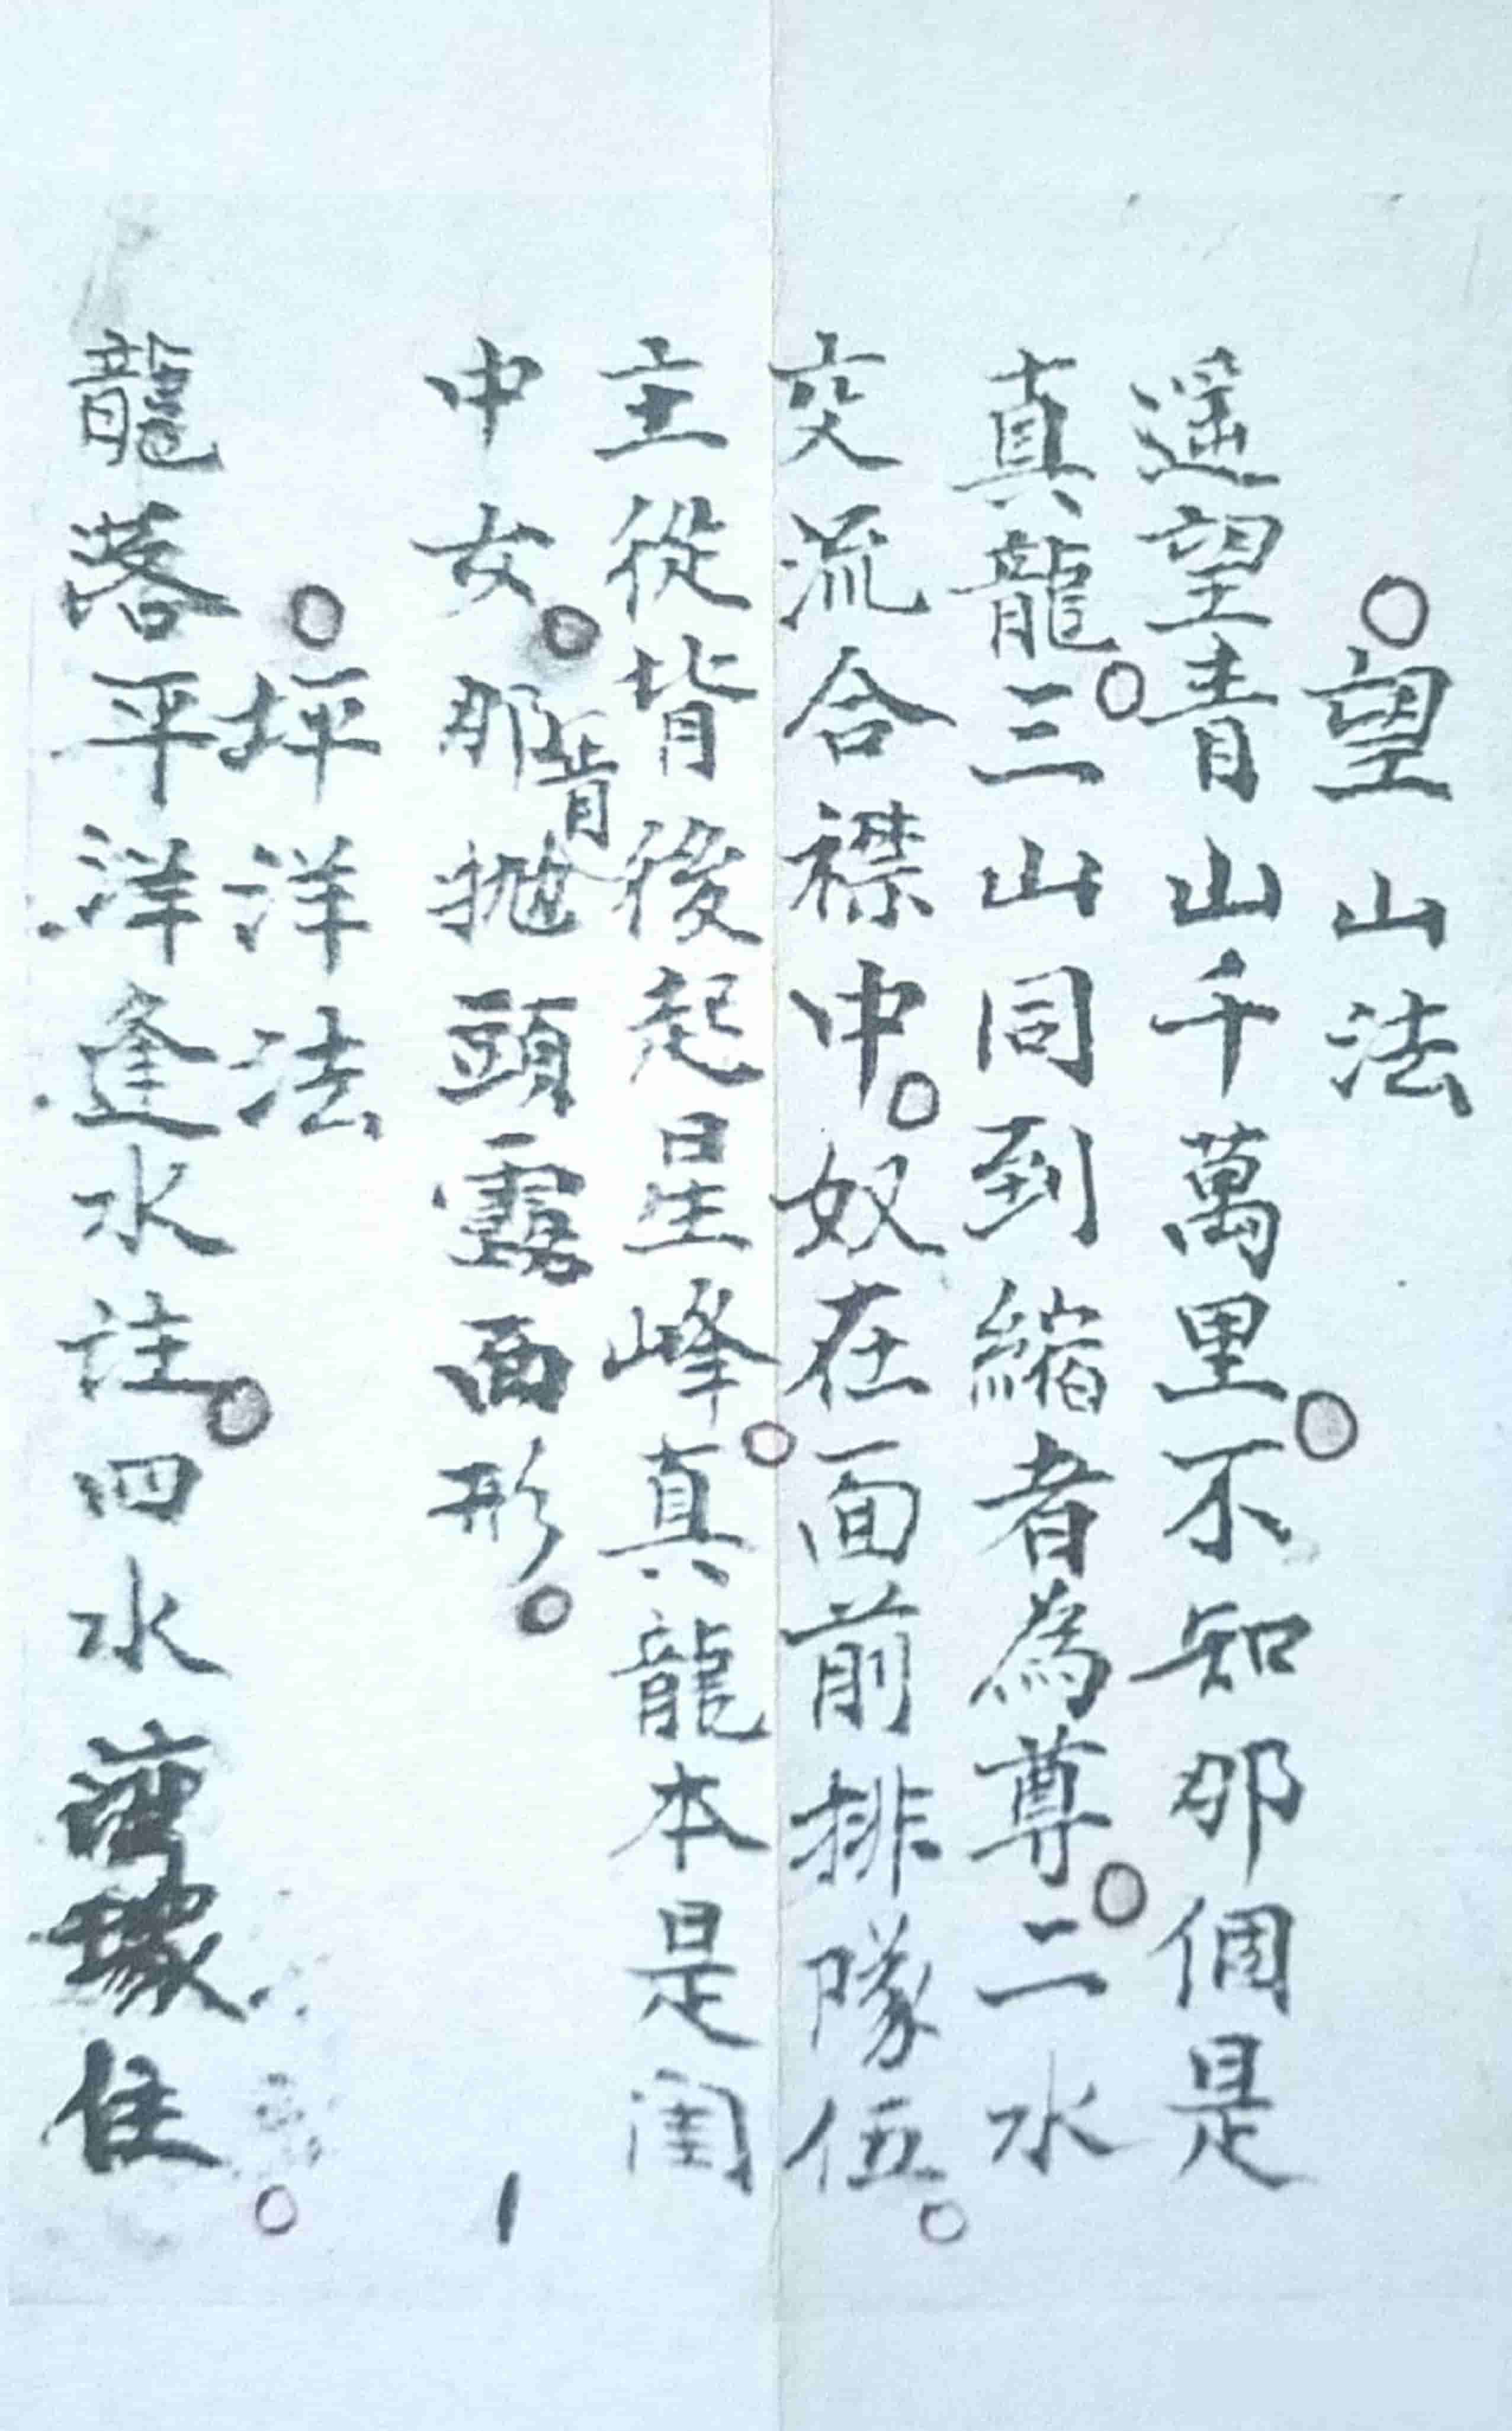 ○望山法
遥望青山千萬里○不知那個是
真龍○三山同到縮者為尊○二水
交流合襟中○奴在面前排隊伍○
主從背後起星峰○真龍本是閨
中女○那肯拋頭露面形○
○坪洋法
龍落平洋逢水註○四水灣環住○